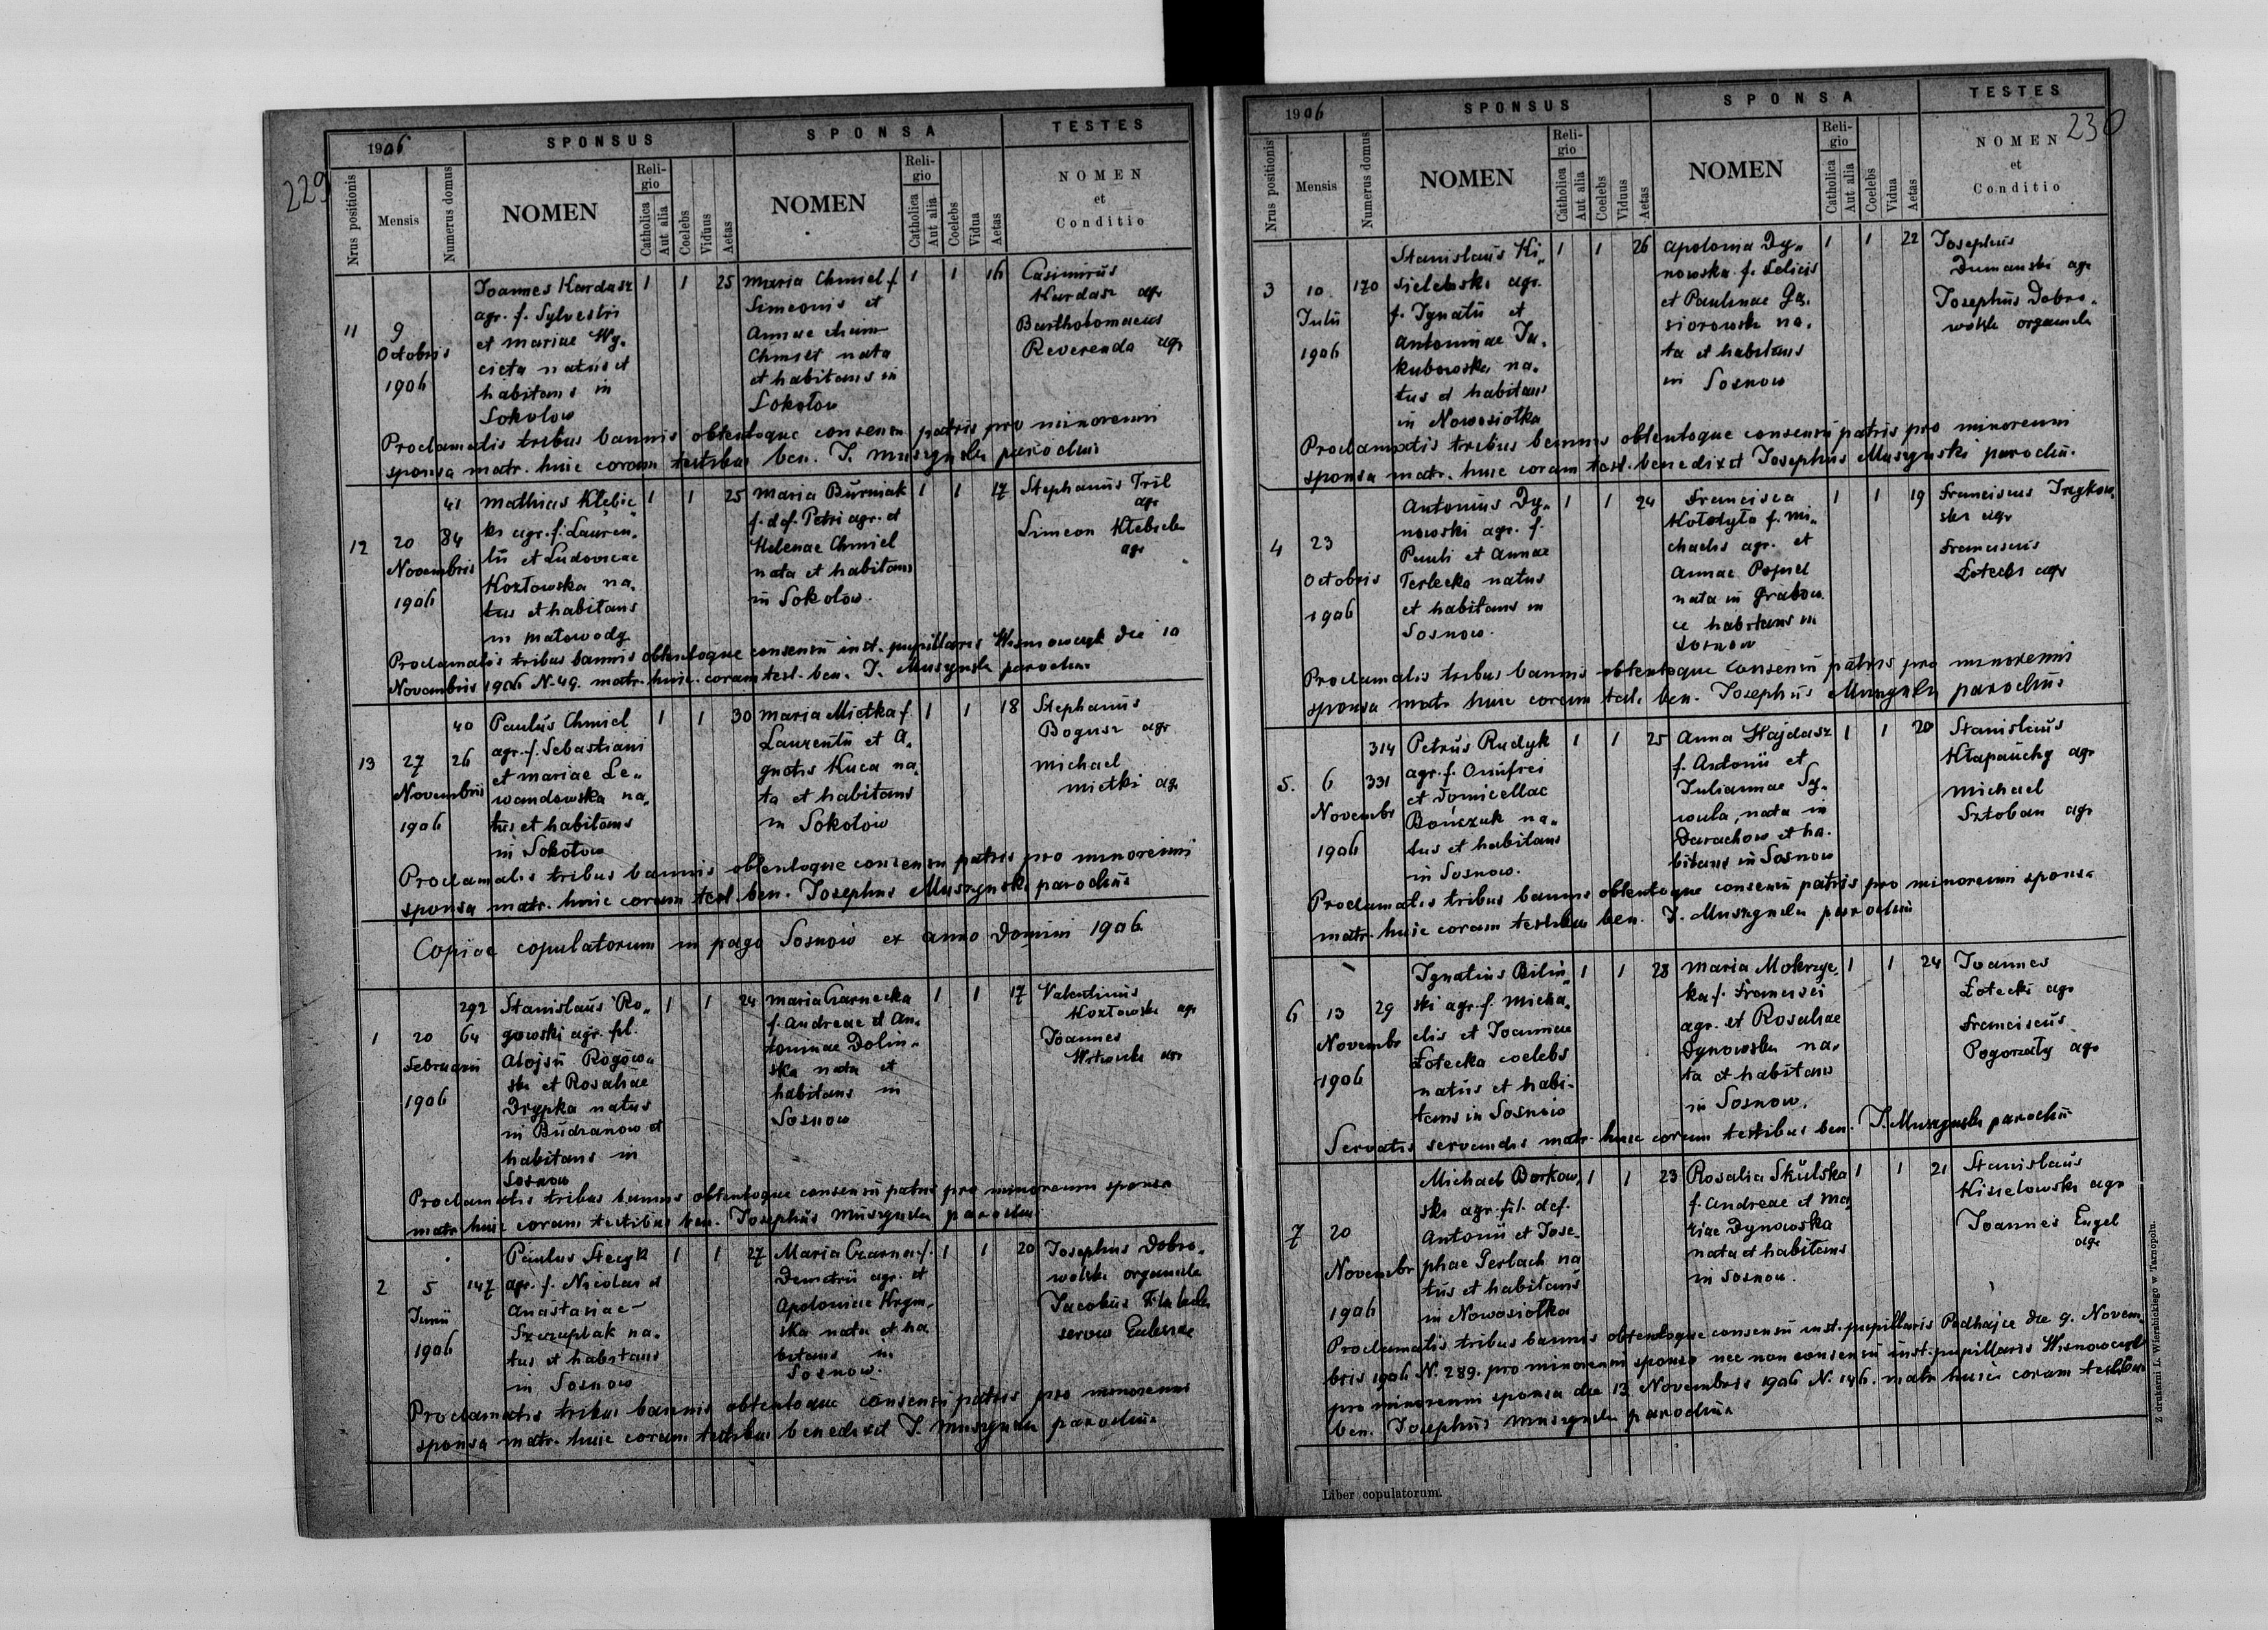 229
1906
SPONSUS
SPONSA
TESTES
Nrus positionis
Mensis
Numerus domus
NOMEN
Religio
Catholica
Aut alia
Coelebs
Viduus
Aetas
NOMEN
Religio
Catholica
Aut alia
Coelebs
Vidua
Aetas
NOMEN
et
Conditio
11
9
Octobris
1906
Joannes Kardasz
agr. f. Sylvestri
et Mariae Wy„
cieta natus et
habitans in
Sokolow
1 1 25
Maria Chmiel f.
Simeonis et
Annae etiam
Chmiel nata
et habitans in
Sokołow
1 1 16
Casimirus
Kardasz agr
Bartholomaeus
Reverenda agr
Proclamatis tribus bannis obtentoque consensu patris pro minorenni
sponsa matr. huic coram testibus ben. J. Muszynski parochus
12
20
Novembris
1906
41
84
Mathias Klebic„
ki agr. f. Lauren„
tii et Ludovicae
Kozłowska na„
tus et habitans
in Małowody
1 1 25
Maria Burniak
f. def. Petri agr. et
Helenae Chmiel
nata et habitans
in Sokołow.
1 1 17
Stephanus Tril
agr
Simeon
agr
Proclamatis tribus bannis obtentoque consensu inst. pupillaris Wisniowczyk die 10
Novembris 1906 N. 49. matr. huic. coram test. ben. J. Muszynski parochus
13
27
Novembris
1906
40
26
Paulus Chmiel
agr. f. Sebastiani
et Mariae Le„
wandowska na„
tus et habitans
in Sokołow
1 1 30
Maria Mietka f.
Laurentii et A„
gnetis Kuca na„
ta et habitans
in Sokołow
1 1 18
Stephanus
Bogusz agr
Michael
Mietki agr
Proclamatis tribus bannis obtentoque consensu patris pro minorenni
sponsa matr. huic coram test. ben. Josephus Muszynski parochus
Copiae copulatorum in pago Sosnow ex anno Domini 1906
1
20
Februarii
1906
292
64
Stanislaus Ro„
gowski agr. fil.
Aloisii Rogow„
ski et Rosaliae
Drypka natus
in Budzanow et
habitans in
Sosnow
1 1 24
Maria Czarnecka
f. Andreae et An„
toninae Dolin„
ska nata et
habitans in
Sosnow
1 1 17
Valentinus
Kozłowski agr
Joannes
agr
Proclamatis tribus bannis obtentoque consensu patris pro minorenni sponsa
matr. huic coram testibus ben. Josephus Muszynski parochus
2
5
Junii
1906
147
Paulus Stecyk
agr. f. Nicolai et
Anastasiae
Szczuplak na„
tus et habitans
in Sosnow
1 1 27
Maria Czarna f.
Demetrii agr. et
Apoloniae Krym„
ska nata et ha
bitans in
Sosnow.
1 1 20
Josephus Dobro„
wolski organista
Jacobus
servus
Proclamatis tribus bannis obtentoque consensu patris pro minorenni
sponsa matr. huic coram testibus benedixit J. Muszynski parochus
230
1906
SPONSUS
SPONSA
TESTES
Nrus positionis
Mensis
Numerus domus
NOMEN
Religio
Catholica
Aut alia
Coelebs
Viduus
Aetas
NOMEN
Religio
Catholica
Aut alia
Coelebs
Vidua
Aetas
NOMEN
et
Conditio
3
10
Julii
1906
170
Stanislaus Ki„
sielewski agr.
f. Ignatii et
Antoninae Ja„
kubowska na„
tus et habitans
in Nowosiolka
1 1 26
Apolonia Dy„
nowska f. Felicis
et Paulinae Gą„
siorowska na„
ta et habitans
in Sosnow
1 1 22
Josephus
Dumanski agr
Josephus Dobro„
wolski organista
Proclamatis tribus bannis obtentoque consensu patris pro minorenni
sponsa matr. huic coram test. benedixit Josephus Muszynski parochus.
4
23
Octobris
1906
Antonius Dy„
nowski agr. f.
Pauli et Annae
Terlecka natus
et habitans in
Sosnow.
1 1 24
Francisca
Kołodyło f. Mi„
chaelis agr. et
Annae Popiel
nata in Grabow
ce habitans in
Sosnow
1 1 19
Franciscus
ski agr
Franciscus
Łotecki agr
Proclamatis tribus bannis obtentoque consensu patris pro minorenni
sponsa matr. huic coram test. ben. Josephus Muszynski parochus
5.
6
Novembr
1906
314
331
Petrus Rudyk
agr. f. Onufrei
et Domicellae
Bonczuk na„
tus et habitans
in Sosnow.
1 1 25
Anna Hajdasz
f. Antonii et
Juliannae Sy„
wula, nata in
Darachow et ha„
bitans in Sosnow
1 1 20
Stanislaus
Kłapauchy agr
Michael
Sztoban agr
Proclamatis tribus bannis obtentoque consensu patris pro minorenni sponsa
matr. huic coram testibus ben. J. Muszynski parochus
6
13
Novembr
1906
29
Ignatius Bilin„
ski agr. f. Micha„
elis et Joannae
Łotecka coelebs
natus et habi„
tans in Sosnow
1 1 28
Maria Mokrzyc„
ka f. Francisci
agr. et Rosaliae
Dynowska na„
ta et habitans
in Sosnow.
1 1 24
Joannes
Łotecki agr
Franciscus
Pogorzały agr
Servatis servandis matr. huic coram testibus ben. J. Muszynski parochus
7
20
Novembr
1906
Michael Borkow„
ski agr. fil. def.
Antonii et Jose„
phae Gerlach na
tus et habitans
in Nowosiolka
1 1 23
Rosalia Skulska
f. Andreae et Ma
riae Dynowska
nata et habitans
in Sosnow.
1 1 21
Stanislaus
Kisielowski agr
Joannes Engel
agr
Proclamatis tribus bannis obtentoque consensu inst. pupillaris Podhajce die 9. Novem„
bris 1906 N. 289. pro minorenni sponso nec non consensu inst. pupillaris Wisniowczyk
pro minorenni sponsa die 13 Novembris 1906 N. 146. matr. huic coram testibus
ben. Josephus Muszynski parochus
Liber copulatorum.
Z drukarni L. Wierzbickiego w Tarnopolu.